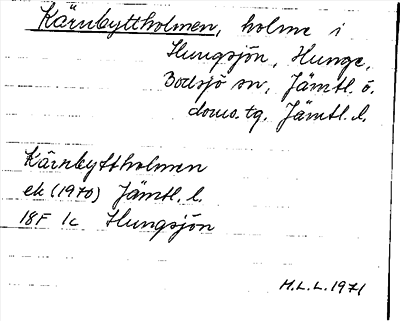 Kärnbyttholmen, holme i
Hungsjön, Hunge,
Bodsjö sn, Jämtl. ö.
doms.tg. Jämtl. l.
Kärnbyttholmen
ek (1970) Jämtl. l.
18F 1c Hungsjön
H.L.L. 1971